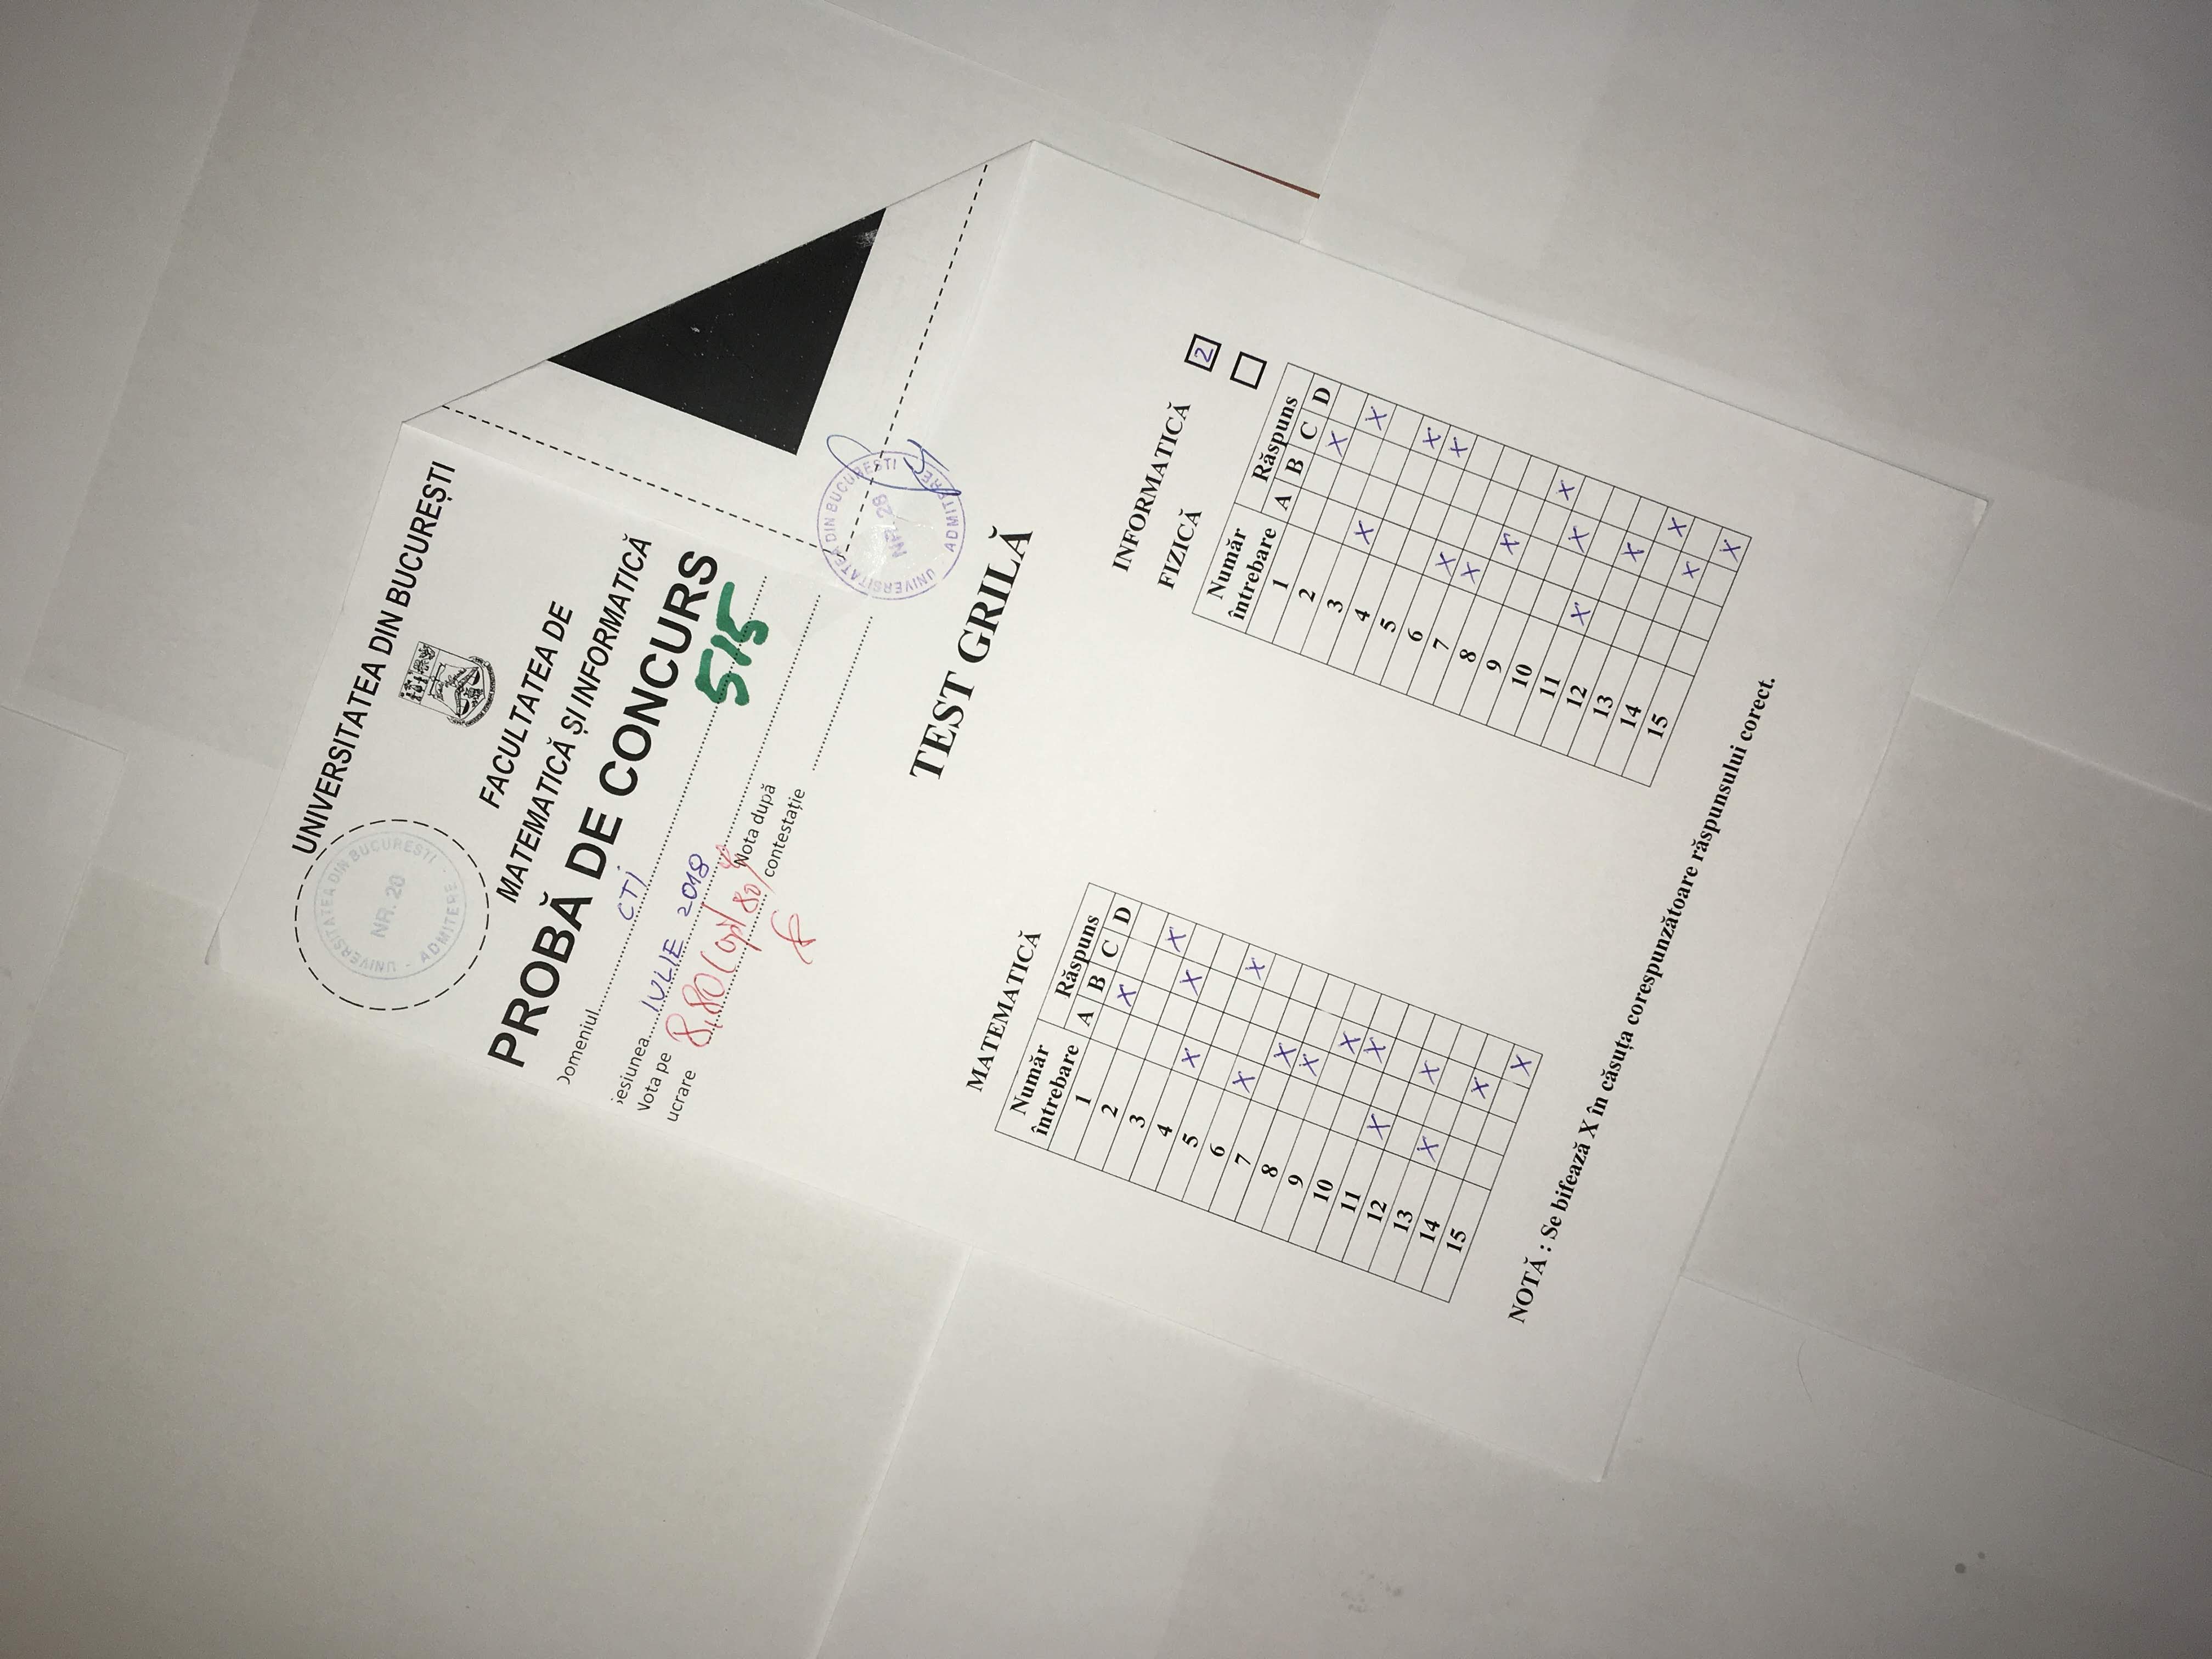 UNIVERSITATEA DIN BUCUREȘTI
UNIVERSITATEA DIN BUCUREȘTI
NR. 20
ADMITERE
FACULTATEA DE
MATEMATICĂ ȘI INFORMATICĂ
PROBĂ DE CONCURS
Domeniul CTI
515
Sesiunea IULIE 2018
Nota pe lucrare 8,80 (opt 80
Nota după contestație
UNIVERSITATEA DIN BUCUREȘTI
NR. 28
ADMITERE
TEST GRILĂ
MATEMATICĂ
Număr întrebare Răspuns
A B C D
1 X
2 X
3 X
4 X
5 X
6 X
7 X
8 X
9 X
10 X
11 X
12 X
13 X
14 X
15 X
INFORMATICĂ 2
FIZICĂ
Număr întrebare Răspuns
A B C D
1 X
2 X
3 X
4 X
5 X
6 X
7 X
8 X
9 X
10 X
11 X
12 X
13 X
14 X
15 X
NOTĂ : Se bifează X în căsuța corespunzătoare răspunsului corect.